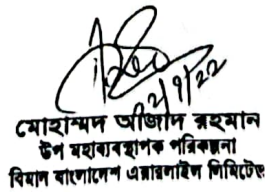 ২/৭/২২
মোহাম্মদ আজাদ রহমান
উপ মহাব্যবস্থাপক পরিকল্পনা
বিমান বাংলাদেশ এয়ারলাইন্স লিমিটেড